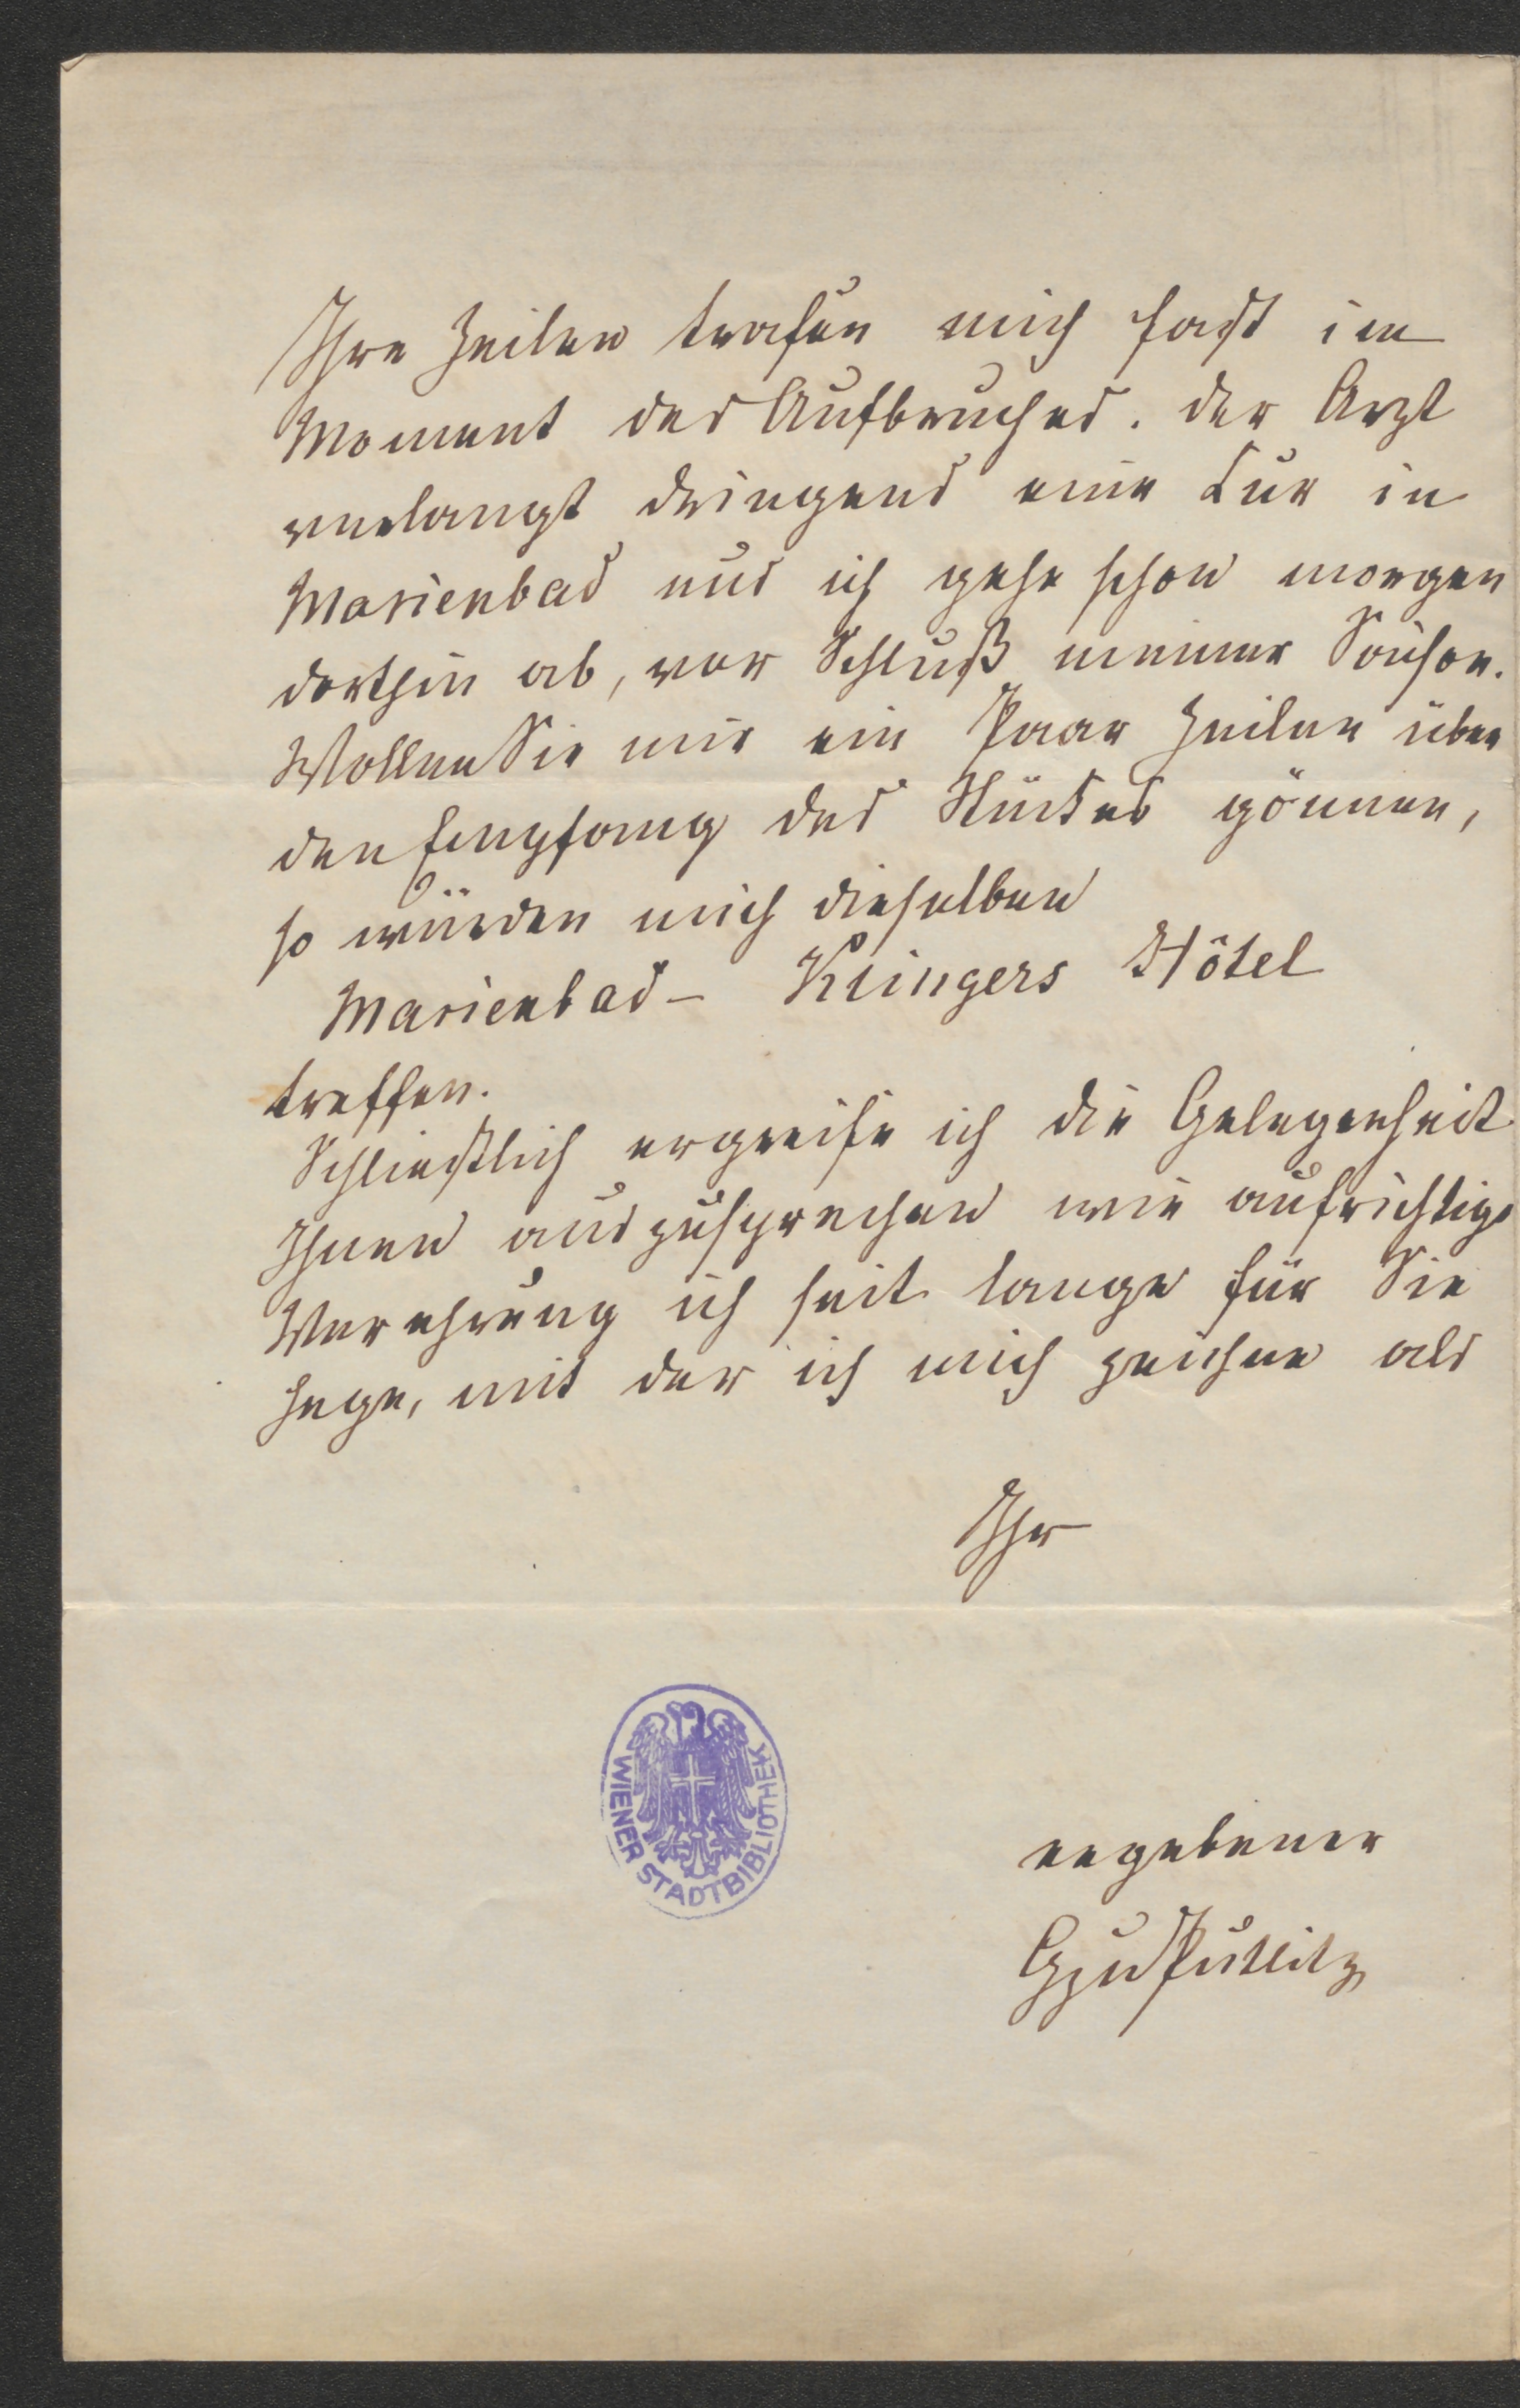 Ihre Zeilen trafen mich fast im
Moment des Aufbruches. Der Arzt
verlangt dringend eine Kur in
Marienbad und ich gehe schon morgen
dorthin ab, vor Schluß meiner Saison.
Wollen Sie mir ein Paar Zeilen über
den Empfang des Stückes gönnen,
so würden mich dieselben
Marienbad – Klingers Hôtel
treffen.
Schließlich ergreife ich die Gelegenheit
Ihnen auszusprechen wie aufrichtige
Verehrung ich seit lange für Sie
hege, mit der ich mich zeichne als
Ihr
ergebener
GzuPutlitz
WIENER STADTBIBLIOTHEK